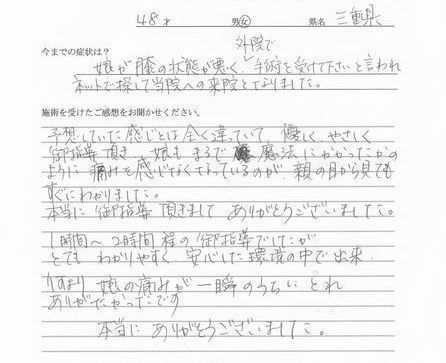 48才 男・女 県名 三重県
今までの症状は?
外院で
娘が膝の状態が悪く、手術を受けて下さいと言われ
ネットで探して当院への来院となりました。
施術を受けたご感想をお聞かせください。
予想していた感じとは全く違っていて、優しく、やさしく
御指導頂き 娘もまるで 魔法にかかったかの
ように痛みを感じなくなっているのが、親の目から見ても
すぐにわかりました。
本当に御指導頂きまして ありがとうございました。
1時間〜2時間程の御指導でしたが
とても わかりやすく、安心した環境の中で出来、
何より 娘の痛みが一瞬のうちに とれ
ありがたかったです
本当に ありがとうございました。